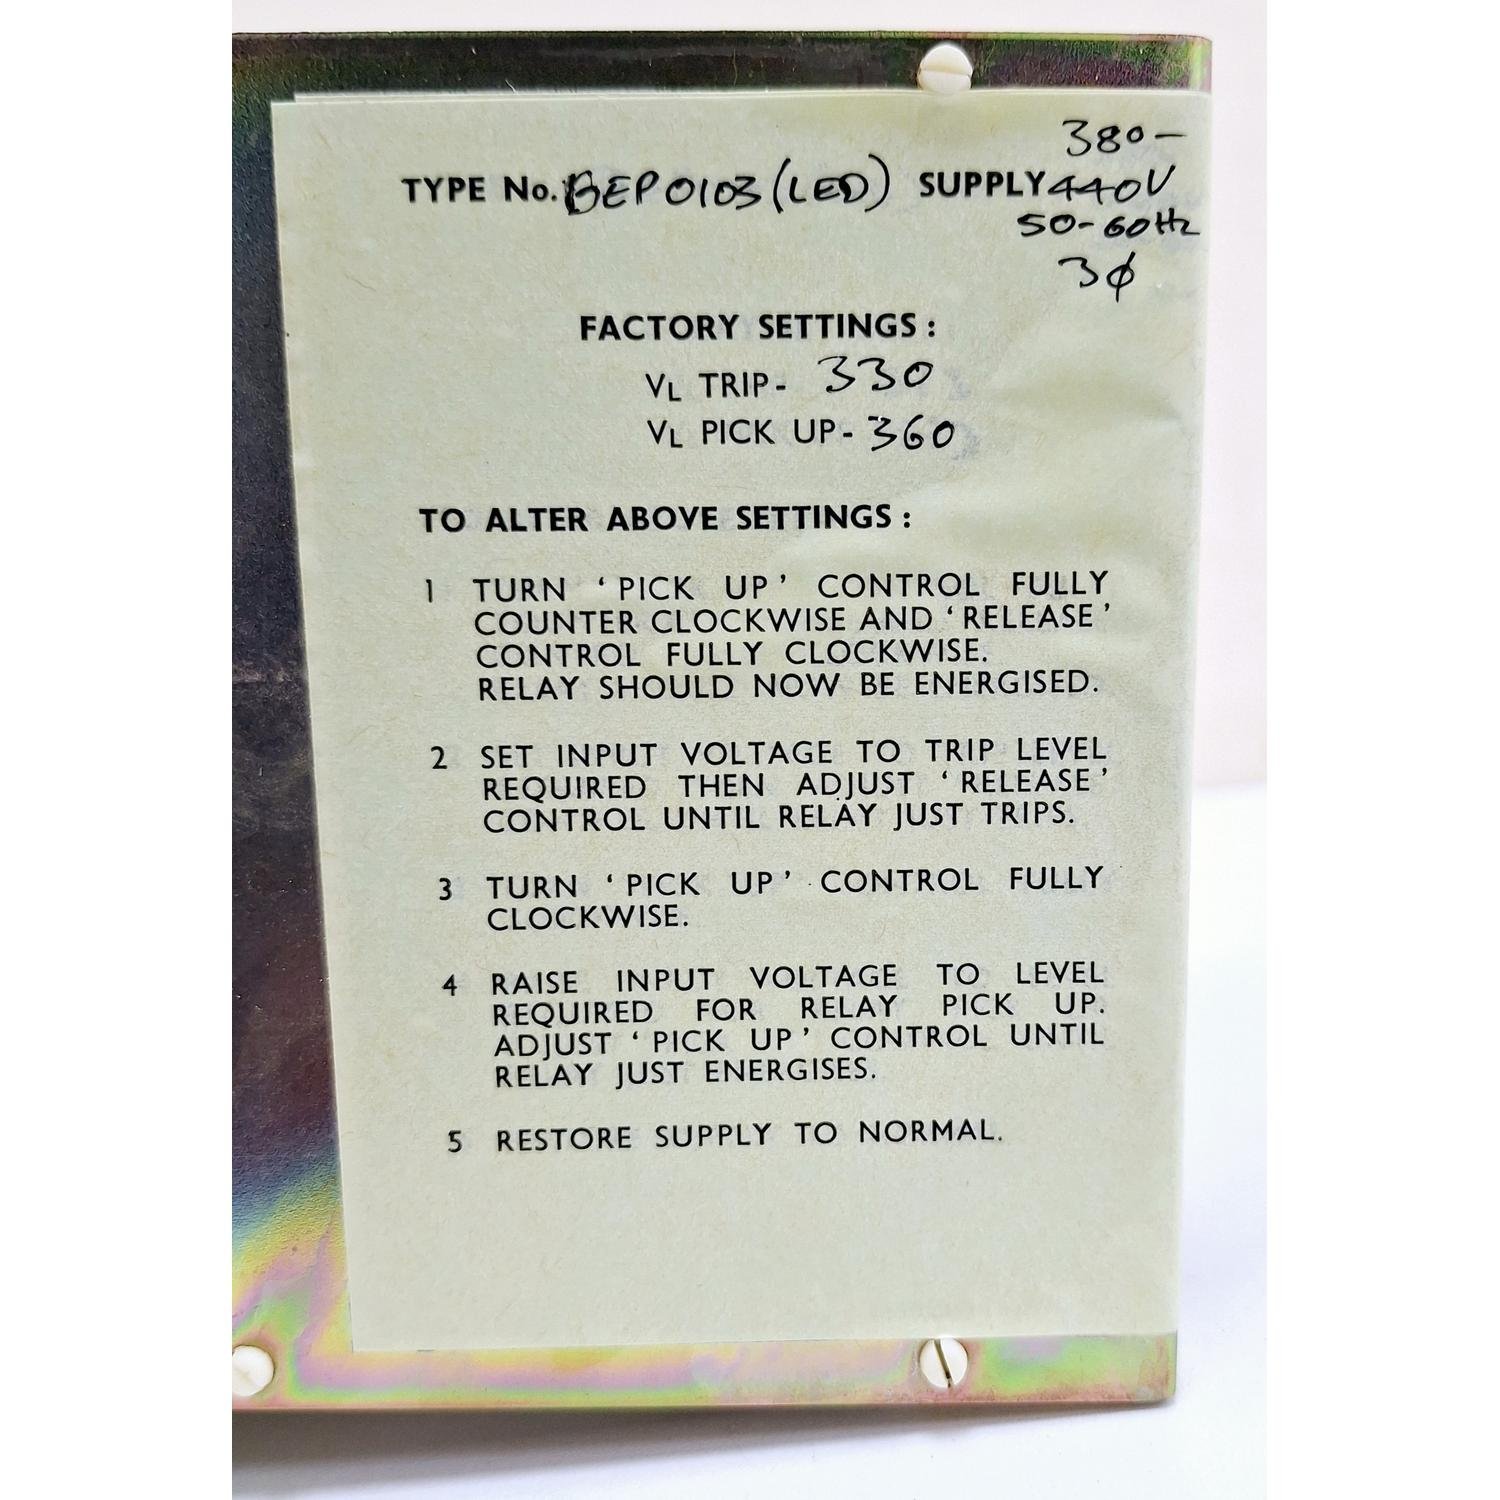 380-
TYPE No. BEP0103 (LED) SUPPLY 440V
50-60Hz
3φ
FACTORY SETTINGS:
VL TRIP- 330
VL PICK UP- 360
TO ALTER ABOVE SETTINGS:
1 TURN 'PICK UP' CONTROL FULLY
COUNTER CLOCKWISE AND 'RELEASE'
CONTROL FULLY CLOCKWISE.
RELAY SHOULD NOW BE ENERGISED.
2 SET INPUT VOLTAGE TO TRIP LEVEL
REQUIRED THEN ADJUST 'RELEASE'
CONTROL UNTIL RELAY JUST TRIPS.
3 TURN 'PICK UP' CONTROL FULLY
CLOCKWISE.
4 RAISE INPUT VOLTAGE TO LEVEL
REQUIRED FOR RELAY PICK UP.
ADJUST 'PICK UP' CONTROL UNTIL
RELAY JUST ENERGISES.
5 RESTORE SUPPLY TO NORMAL.